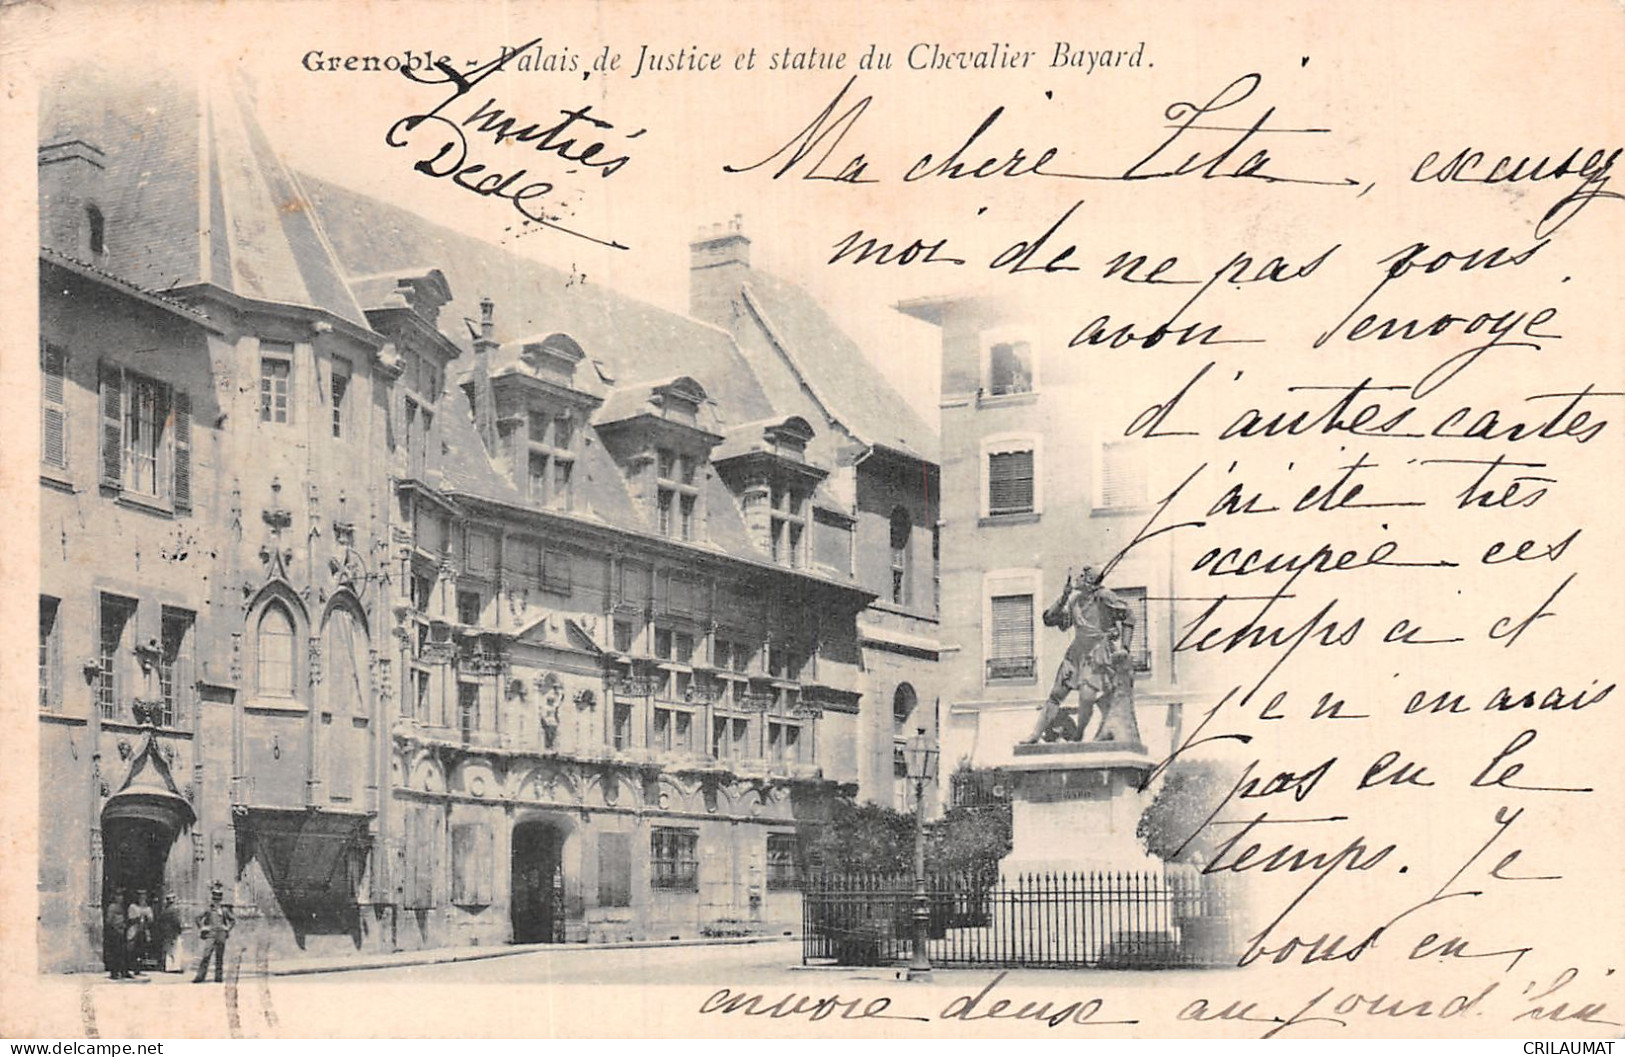 Grenoble - Palais de Justice et statue du Chevalier Bayard.
Amitiés
Dédé
Ma chère Zita, excusez
moi de ne pas vous
avoir envoyé
d'autes cartes
j'ai été très
occupée ces
temps ci et
je n'en avais
pas eu le
temps. Je
vous en
envoie deux aujourd'hui
CRILAUMAT